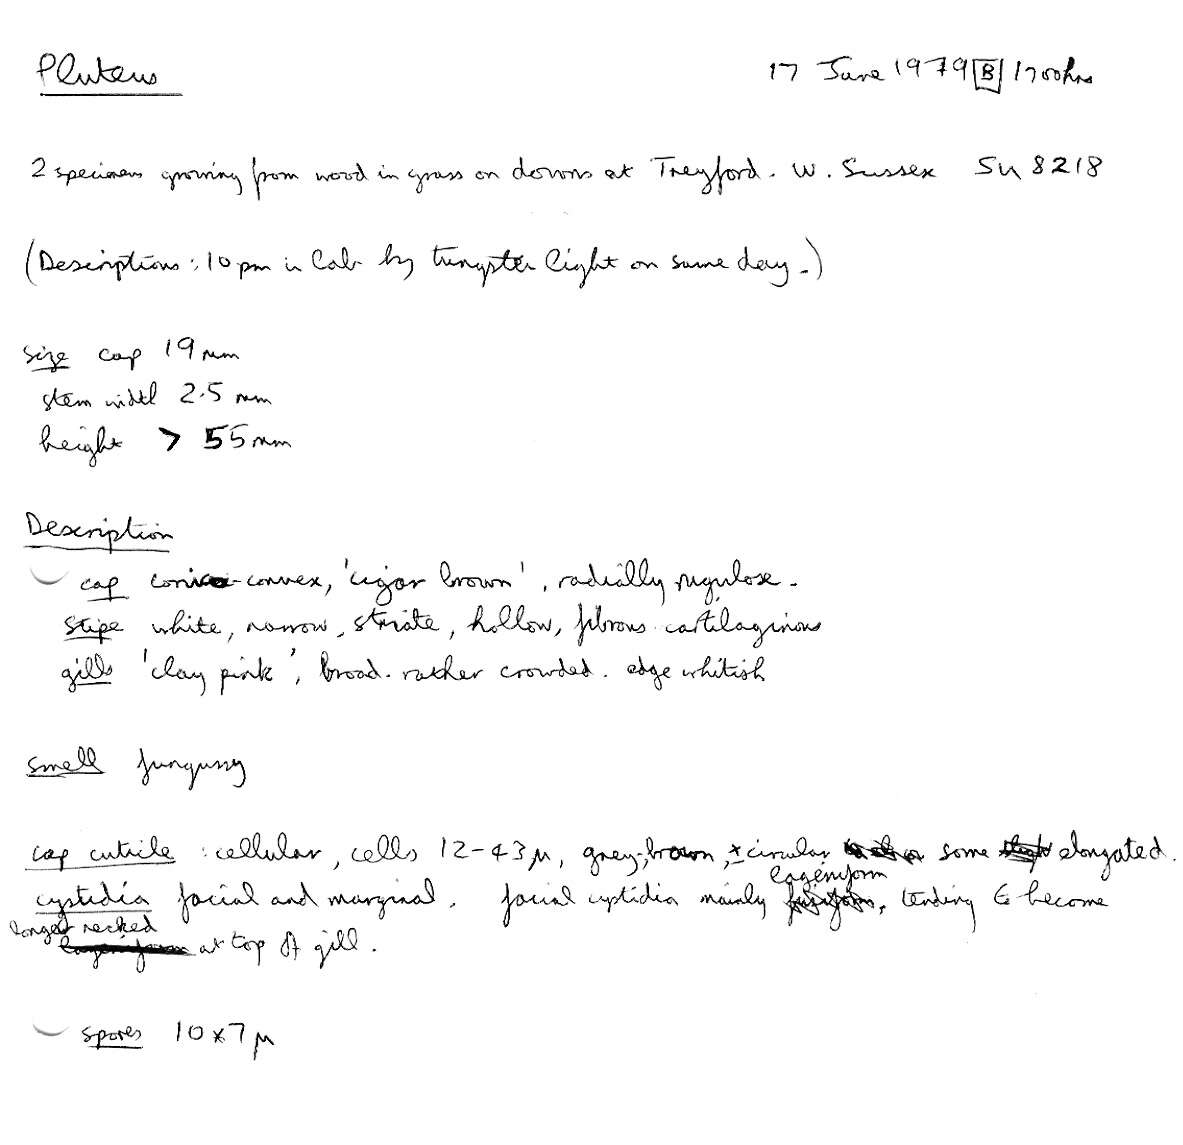 Pluteus
17 June 1979 B 1700hrs
2 specimens growing from wood in grass on downs at Treyford. W. Sussex SU 8218
(Descriptions: 10 pm in lab by tungsten light on same day.)
size cap 19 mm
stem width 2.5 mm
height > 55 mm
Description
cap conico-convex, 'cigar brown', radially rugulose.
stipe white, narrow, striate, hollow, fibrous-cartilaginous
gills 'clay pink', broad. rather crowded. edge whitish
smell fungussy
cap cuticle: cellular, cells 12-43 μ, grey-brown, ± circular or some elongated.
lageniform
cystidia facial and marginal. facial cystidia mainly fusiform, tending to become
longer necked
at top of gill.
spores 10 x 7 μ